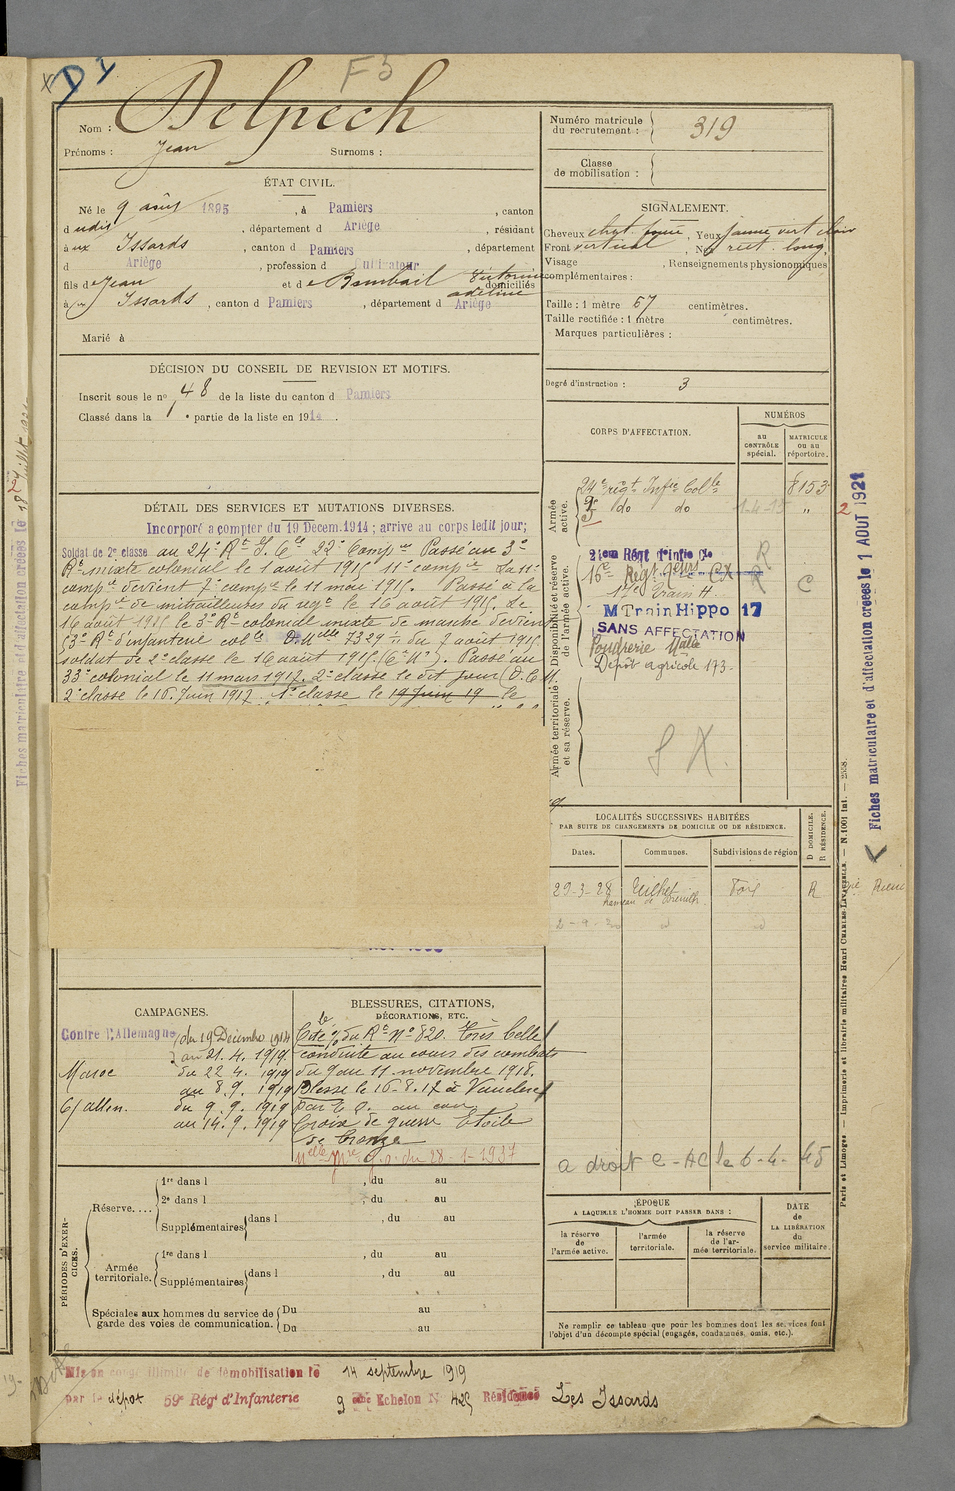 D 1
F 5
Nom : Delpech
Prénoms : Jean Surnoms :
Numéro matricule du recrutement : 319
Classe de mobilisation :
ÉTAT CIVIL.
Né le 9 août 1895, à Pamiers, canton
dudit, département d Ariège, résidant
à aux Issards, canton d Pamiers, département
d Ariège, profession d Cultivateur
fils de Jean et de Bambail Victorine Adeline domiciliés
à aux Issards, canton d Pamiers, département d Ariège
Marié à
SIGNALEMENT.
Cheveux chat. foncé, Yeux jaune vert clair
Front vertical, Nez rect. long,
Visage , Renseignements physionomiques
complémentaires :
Taille : 1 mètre 67 centimètres.
Taille rectifiée : 1 mètre centimètres.
Marques particulières :
Degré d'instruction : 3
DÉCISION DU CONSEIL DE REVISION ET MOTIFS.
Inscrit sous le no 48 de la liste du canton d Pamiers
Classé dans la 1e partie de la liste en 1914.
CORPS D'AFFECTATION.
NUMÉROS
au CONTRÔLE spécial.
MATRICULE ou au répertoire.
Armée active.
24e régt Infie Colle 8153
do do 1-4-15 "
2
Disponibilité et réserve de l'armée active.
21em Régt d'infie Cle R
16e
R C
Train H.
M Train Hippo 17
SANS AFFECTATION
Poudrerie Natle
Dépôt agricole 173-
Armée territoriale et sa réserve.
S X.
DÉTAIL DES SERVICES ET MUTATIONS DIVERSES.
Incorporé à compter du 19 Décem.1914 ; arrive au corps ledit jour;
Soldat de 2e classe au 24e Rt I. Cle 22e Compie Passé au 3e
Rt mixte colonial le 1 août 1915 11e compie La 11e
compie devient 7e compie le 11 mai 1915. Passé à la
compie de mitrailleuses du régt le 16 août 1915. Le
16 août 1915 le 3e Rt colonial mixte de marche devient
53e Rt d'infanterie colle D. Mlle 7329 1/1 du 7 août 1915
soldat de 2e classe le 16 août 1915. (C. M.). Passé au
33e colonial le 11 mars 1917. 2e classe le dit jour (D.C.M.
2e classe le 16 Juin 1917. 1e classe le 19 Juin 19 le
LOCALITÉS SUCCESSIVES HABITÉES
PAR SUITE DE CHANGEMENTS DE DOMICILE OU DE RÉSIDENCE.
Dates. Communes. Subdivisions de région D DOMICILE. R RÉSIDENCE.
29-3-28 Teilhet Foix R
hameau de
2-9-30 id id
a droit C-AC le 6-4-45
CAMPAGNES.
Contre l'Allemagne du 19 Décembre 1914
au 21.4.1919
Maroc du 22 4. 1919
au 8.9. 1919
C/ allem. du 9.9.1919
au 14.9.1919
BLESSURES, CITATIONS,
DÉCORATIONS, ETC.
Cité % du Rt No 820. Très belle
conduite au cours des combats
du 9 au 11 novembre 1918.
Blessé le 16-8-17 à Vauclerc
par E.O. au cou
Croix de guerre Étoile
de bronze
Mlle Mre d.o. du 28-1-1937
PÉRIODES D'EXERCICES.
Réserve....
1re dans l , du au
2e dans l , du au
Supplémentaires dans l , du au
Armée territoriale.
1re dans l , du au
Supplémentaires dans l , du au
Spéciales aux hommes du service de garde des voies de communication.
Du au
Du au
ÉPOQUE
A LAQUELLE L'HOMME DOIT PASSER DANS :
la réserve de l'armée active.
l'armée territoriale.
la réserve de l'armée territoriale.
DATE de LA LIBÉRATION du service militaire.
Ne remplir ce tableau que pour les hommes dont les services font
l'objet d'un décompte spécial (engagés, condamnés, omis, etc.).
Mis en congé illimité de démobilisation le 14 septembre 1919
par le dépôt 59e Rég' d'Infanterie 9 ème Echelon N 425 Résidence Les Issards
Paris et Limoges — Imprimerie et librairie militaires Henri CHARLES-LAVAUZELLE. — N. 1001 int. — 2558.
Fiches matriculaire et d'affectation créées le 1 AOUT 1921
Fiches matriculaire et d'affectation créées le